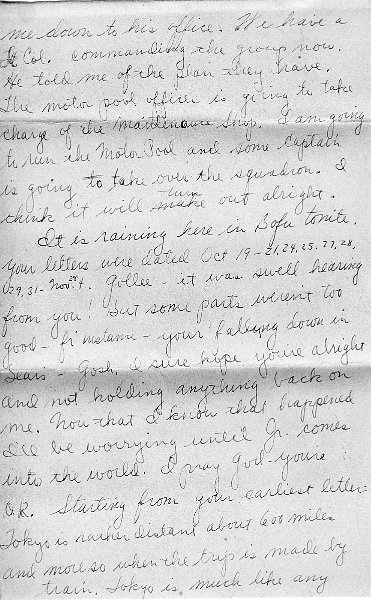 me down to his office. We have a
Lt Col. commanding the group now.
He told me of the plan they have.
The motor pool officer is going to take
charge of the maintenance shop. I am going
to run the Motor Pool and some Captain
is going to take over the squadron. I
turn
think it will make out alright.
It is raining here in Bofu tonite.
Your letters were dated Oct 19-21, 24, 25, 27, 28,
29, 31 - Nov. 4. Gollee - it was swell hearing
from you! But some parts weren't too
good - f'instance - your falling down in
Sears - Gosh, I sure hope you're alright
and not holding anything back on
me. Now that I know that happened
I'll be worrying until Jr. comes
into the world. I pray God you're
O.K. Starting from your earliest letter:
Tokyo is rather distant about 600 miles
and more so when the trip is made by
train. Tokyo is much like any